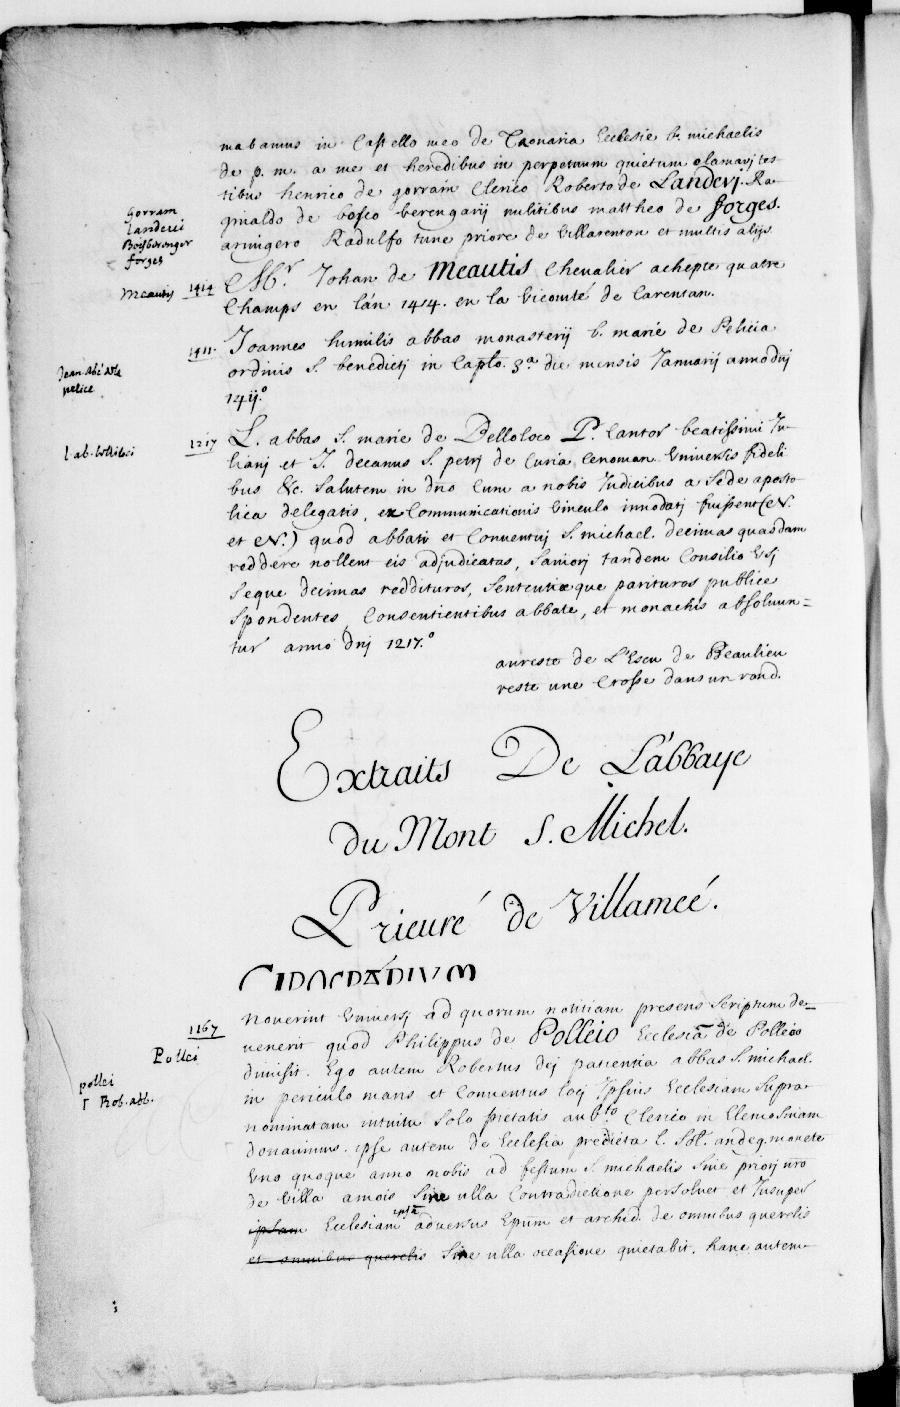 mabamus in Castello meo de Taonaria Ecclesie b. michaelis
de p. m. a me et heredibus in perpetuum quietum clamarj tes-
tibus henrico de gorram Clerico Roberto de Landevj. Ra-
ginaldo de bosco berengarij militibus mattheo de forges.
armigero Radulfo tunc priore de Villarenton et multis alijs.
Gorram
Landevi
Boisberenger
forges
Meautis 1414 Mr. Johan de Meautis Chevalier achepte quatre
Champs en l'an 1414. en la Vicomté de Carentan.
1411. Joannes humilis abbas monasterij b. marie de Pelicia
ordinis S. benedictj in Caplo. 3.a die mensis Januarij anno dnj
14ij.o
Jean abé de la
pelice
1217 L. abbas S. marie de Belloloco P. Cantor beatissimi Ju-
lianj et J. decanus S. petrj de Curia Cenoman. Universis fideli
bus &c. Salutem in dno Cum a nobis Judicibus a Sede aposto
lica delegatis, ex Communicationis Vinculo innodati fuissent (N.
et N.) quod abbati et Conventuj S. michael. decimas quasdam
reddere nollent eis adjudicatas, Saniorj tandem Consilio Usj
Seque decimas reddituros, Sententiæque parituros publice
Spondentes, Consentientibus abbate, et monachis absoluun=
tur anno dnj 1217.o
au reste de L'Escu de Beaulieu
reste une Crosse dans un rond.
Extraits De L'abbaye
du Mont S. Michel.
Prieuré de Villameé.
Noverint Universj ad quorum notitiam presens Scriptum de=
1167 venerit quod Philippus de Polleio Ecclesiā de Polleio
Pollei
dimisit. Ego autem Robertus dej patientia abbas S. michael.
pollei
Rob. abb.
in periculo maris et Conventus locj Ipsius Ecclesiam Supra-
nominatam intuitu Solo pietatis aubto. Clerico in Elemosinam
donavimus. ipse autem de Ecclesia predicta l. Sol. andeg. monete
Uno quoque anno nobis ad festum S. michaelis Sive priorj nro
de Villa amois Sine ulla Contradictione persolvet et Insuper
ipsam Ecclesiam ipsā adversus Epum et archid. de omnibus querelis
et omnibus querelis Sine ulla occasione quietabit. hanc autem